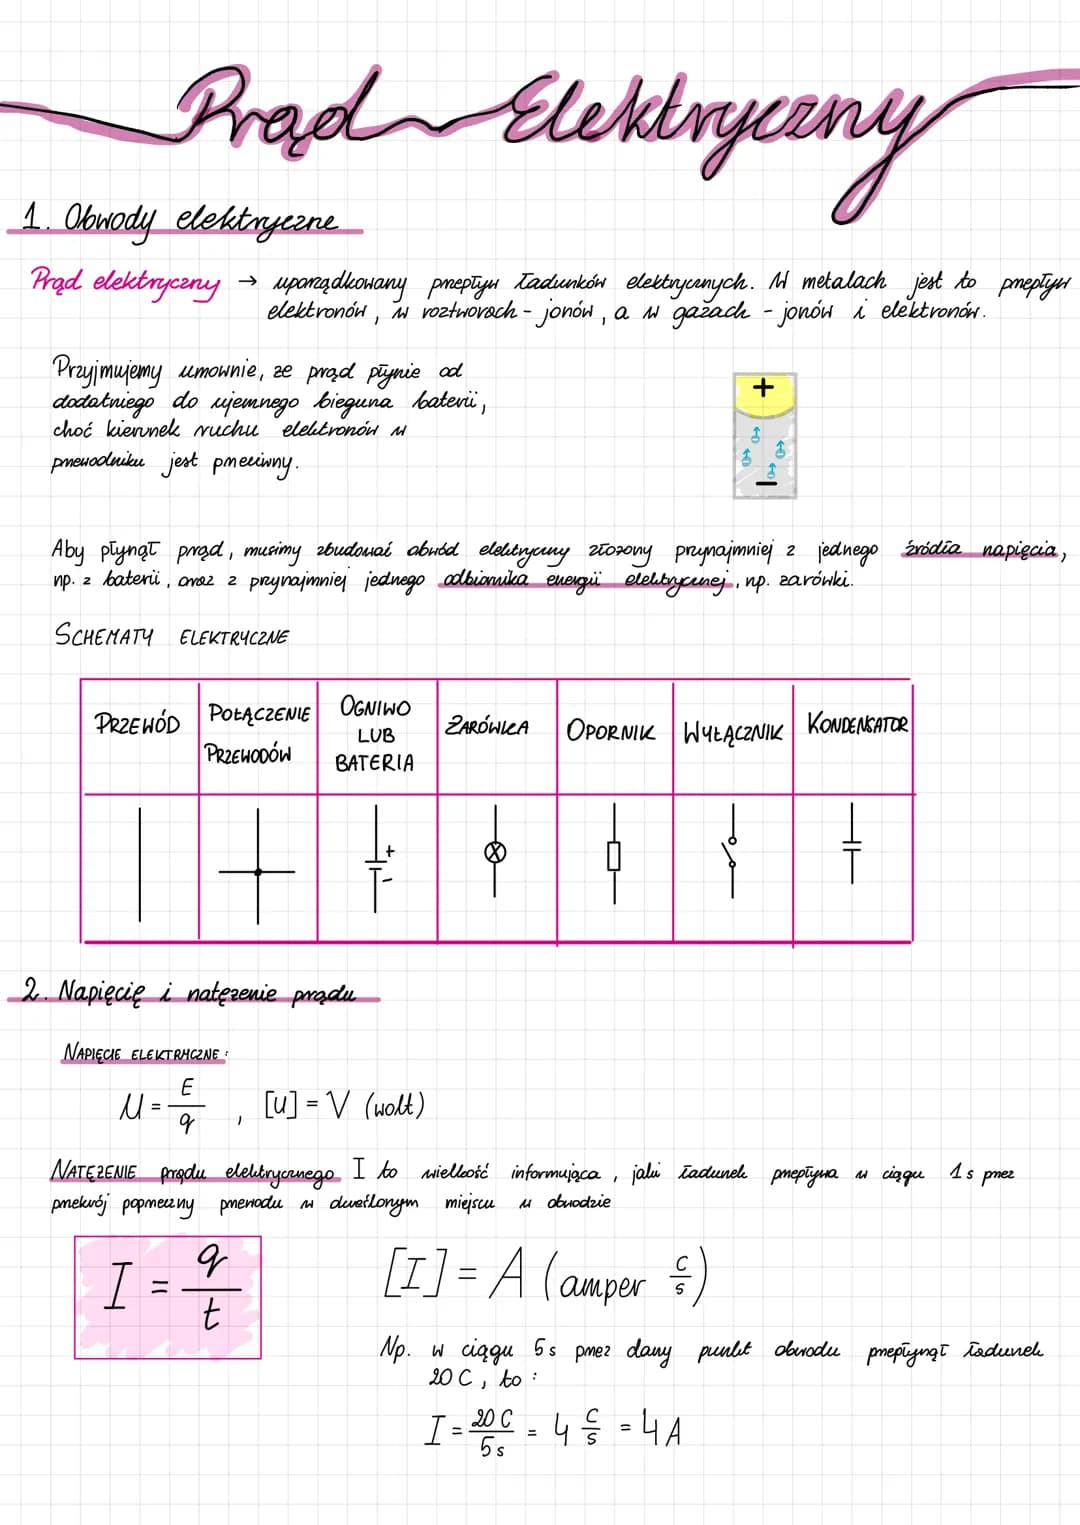 Prąd Elektryczny
1. Obwody elektryczne
Prąd elektryczny → uporządkowany przepływ ładunków elektrycznych. W metalach jest to przepływ
elektronów, w roztworach - jonów, a w gazach - jonów i elektronów.
Przyjmujemy umownie, że prąd płynie od
dodatniego do ujemnego bieguna baterii,
choć kierunek ruchu elektronów w
przewodniku jest przeciwny.
+
-
Aby płynął prąd, musimy zbudować obwód elektryczny złożony przynajmniej z jednego źródła napięcia,
np. z baterii, oraz z przynajmniej jednego odbiornika energii elektrycznej, np. żarówki.
SCHEMATY ELEKTRYCZNE
PRZEWÓD
POŁĄCZENIE
PRZEWODÓW
OGNIWO
LUB
BATERIA
ŻARÓWKA
OPORNIK
WYŁĄCZNIK
KONDENSATOR
+
-
2. Napięcię i natężenie prądu
NAPIĘCIE ELEKTRYCZNE:
U = E/q, [U] = V (wolt)
NATĘŻENIE prądu elektrycznego I to wielkość informująca, jaki ładunek przepływa w ciągu 1 s przez
przekrój poprzeczny przewodu w określonym miejscu w obwodzie
I = q/t
[I] = A (amper C/s)
Np. w ciągu 5 s przez dany punkt obwodu przepłynął ładunek
20 C, to:
I = 20 C/5 s = 4 C/s = 4 A